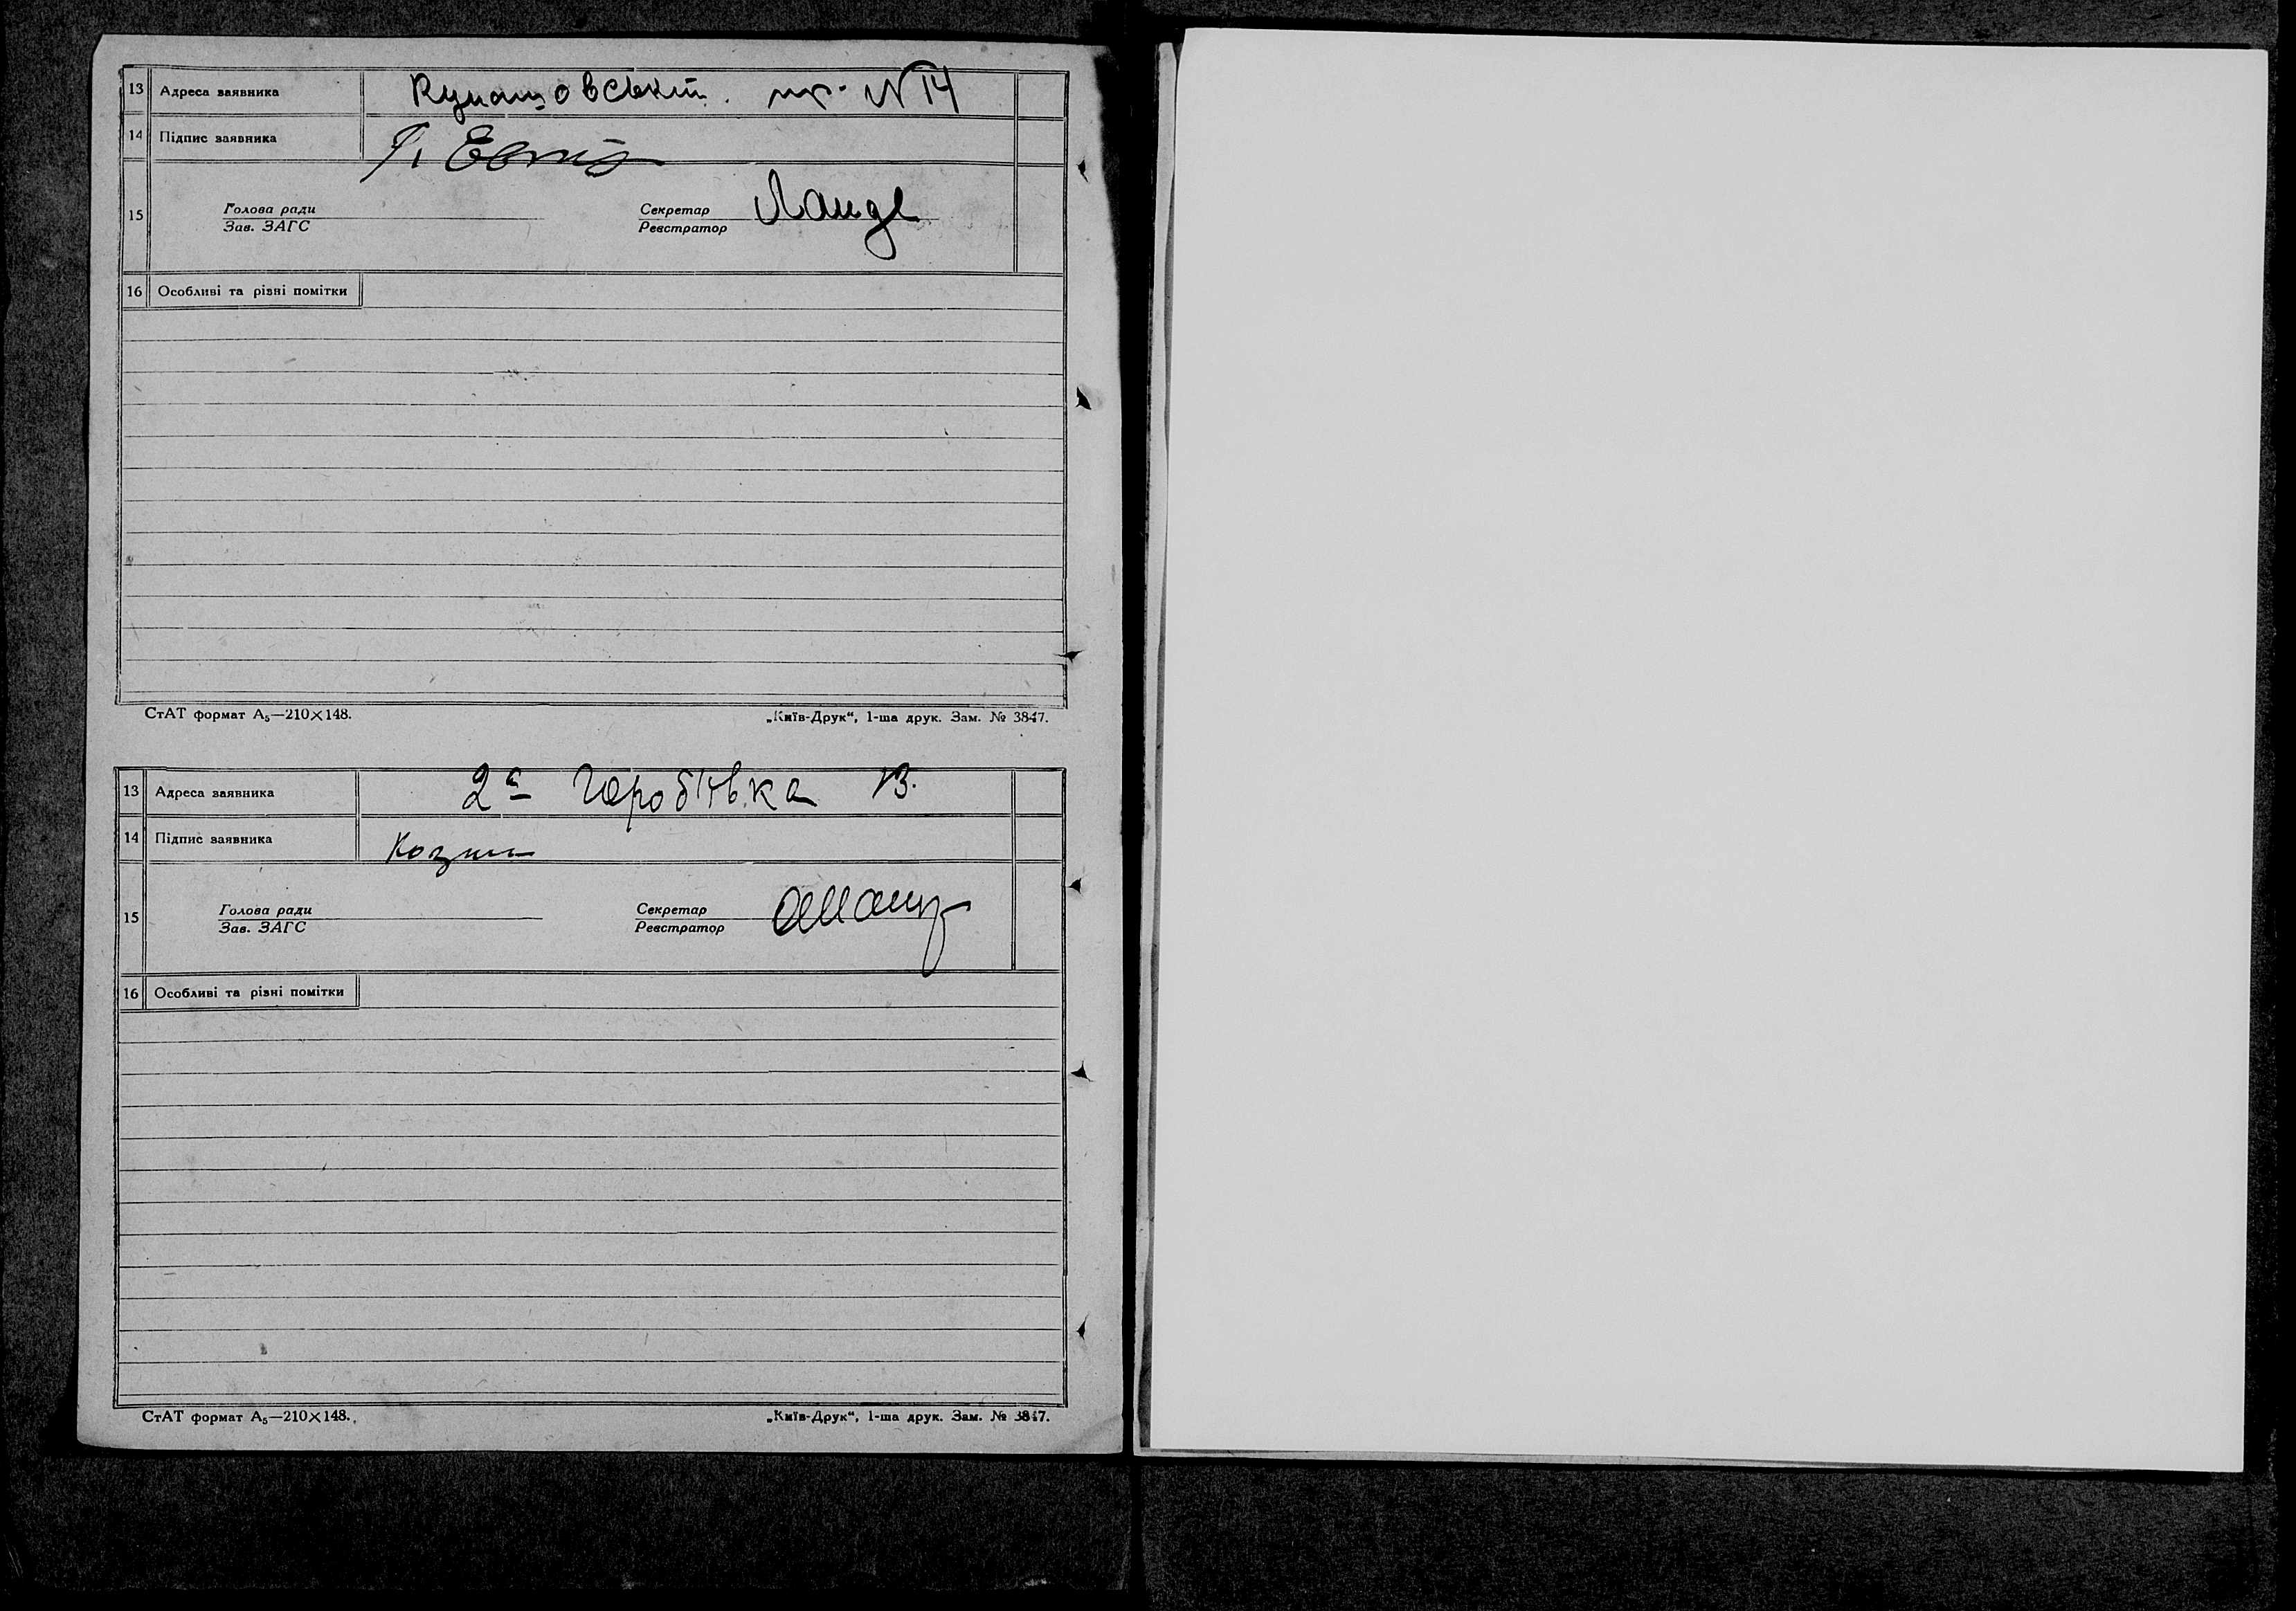 13 Адреса заявника № 14
14 Підпис заявника
15 Голова ради Секретар Ланде
Зав. ЗАГС Реєстратор
16 Особливі та різні помітки
СтАТ формат А₅—210×148. „Київ-Друк“, 1-ша друк. Зам. № 3847.
13 Адреса заявника 2а 13.
14 Підпис заявника
15 Голова ради Секретар
Зав. ЗАГС Реєстратор
16 Особливі та різні помітки
СтАТ формат А₅—210×148. „Київ-Друк“, 1-ша друк. Зам. № 3847.